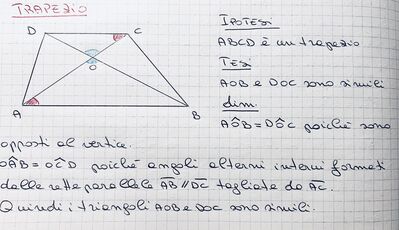 TRAPEZIO
IPOTESI
D C
ABCD è un trapezio
TESI
O
AOB e DOC sono simili
dim.
A B
AÔB = DÔC poiché sono
opposti al vertice.
OÂB = OĈD poiché angoli alterni interni formati
dalle rette parallele AB // DC tagliate da AC.
Quindi i triangoli AOB e DOC sono simili.